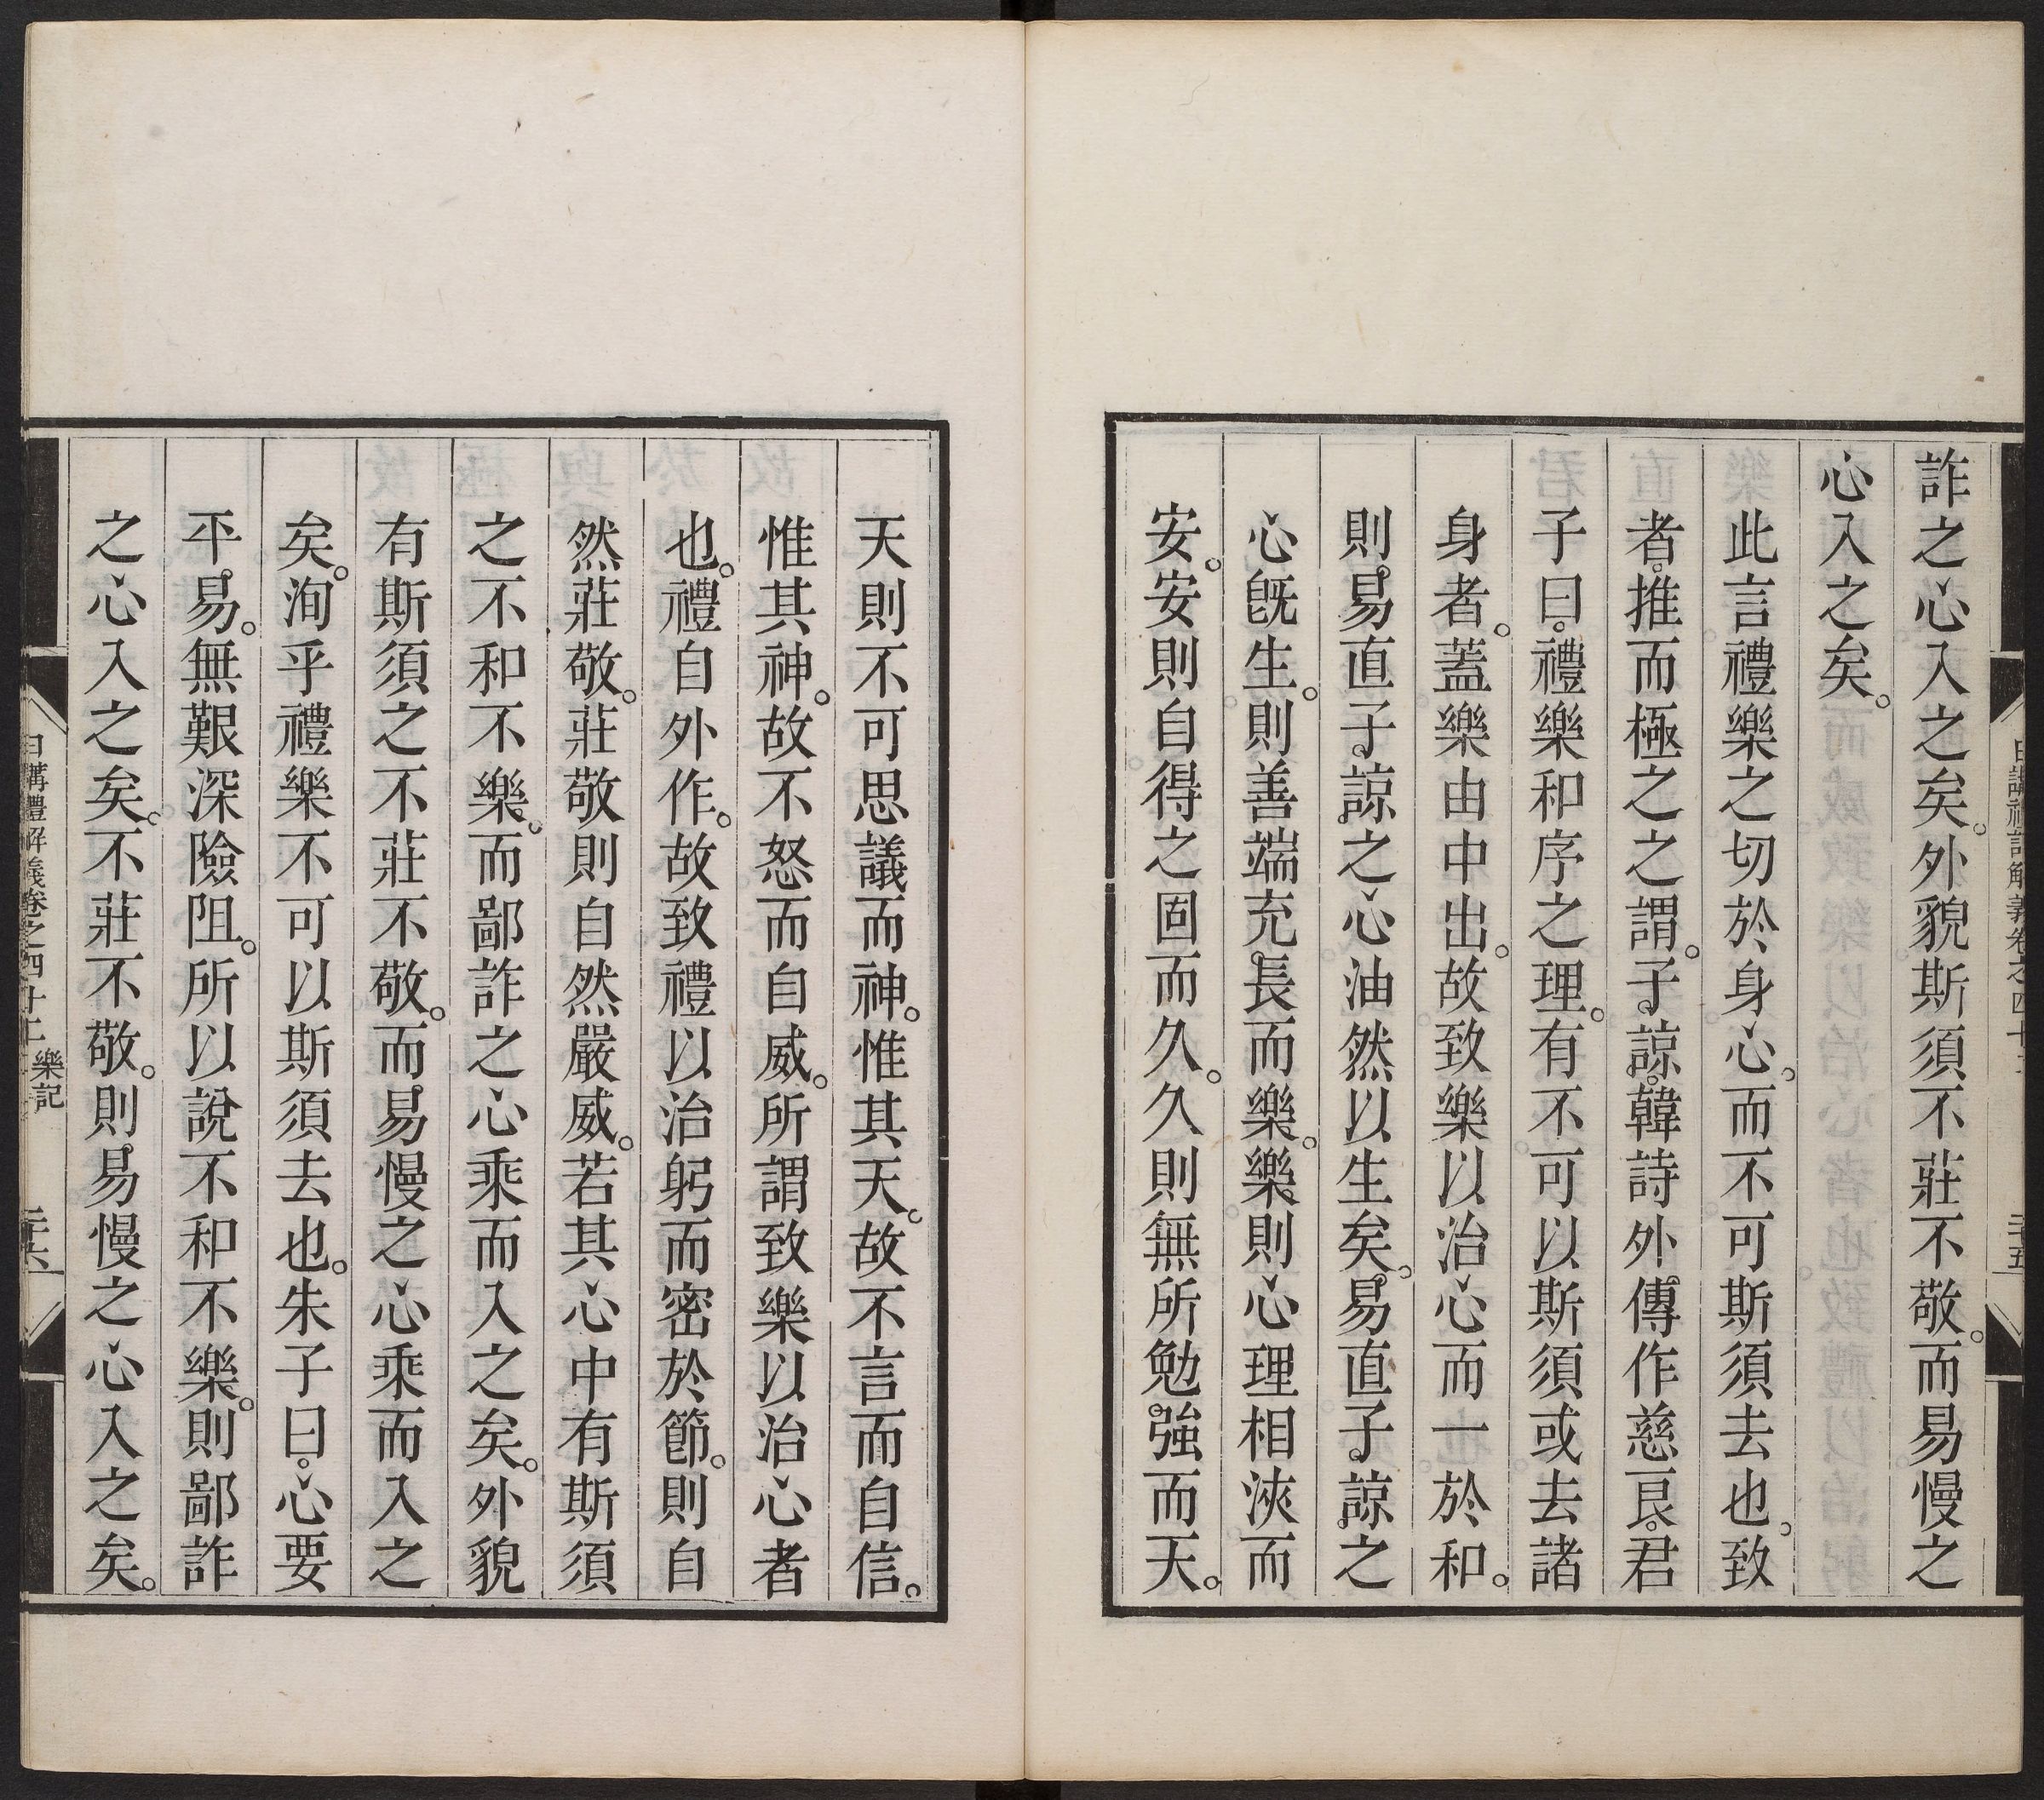 詐之心入之矣。外貌斯須不莊不敬。而易慢之
心入之矣。
此言禮樂之切於身心。而不可斯須去也。致
者。推而極之之謂。子諒。韓詩外傳作慈良。君
子曰。禮樂和序之理。有不可以斯須或去諸
身者。蓋樂由中出。故致樂以治心而一於和。
則易直子諒之心油然以生矣。易直子諒之
心旣生。則善端充長而樂。樂則心理相浹而
安。安則自得之固而久。久則無所勉強而天。
天則不可思議而神。惟其天。故不言而自信。
惟其神。故不怒而自威。所謂致樂以治心者
也。禮自外作。故致禮以治躬而密於節。則自
然莊敬。莊敬則自然嚴威。若其心中有斯須
之不和不樂。而鄙詐之心乘而入之矣。外貌
有斯須之不莊不敬。而易慢之心乘而入之
矣。洵乎禮樂不可以斯須去也。朱子曰。心要
平易。無艱深險阻。所以說不和不樂。則鄙詐
之心入之矣。不莊不敬。則易慢之心入之矣。
卷之四十二 樂記 二十六